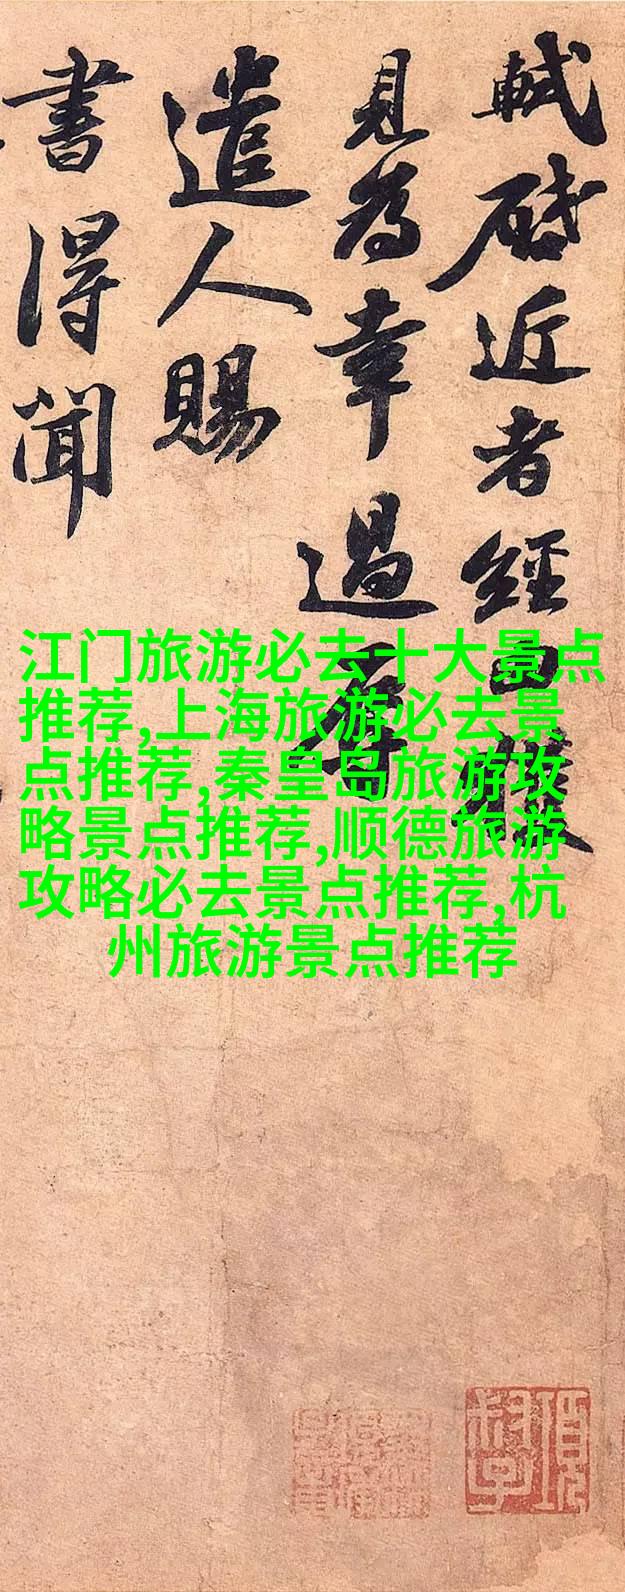 軾啓近者經
見為幸過辱
遣人賜
書得聞
江门旅游必去十大景点
推荐,上海旅游必去景
点推荐,秦皇岛旅游攻
略景点推荐,顺德旅游
攻略必去景点推荐,杭
州旅游景点推荐